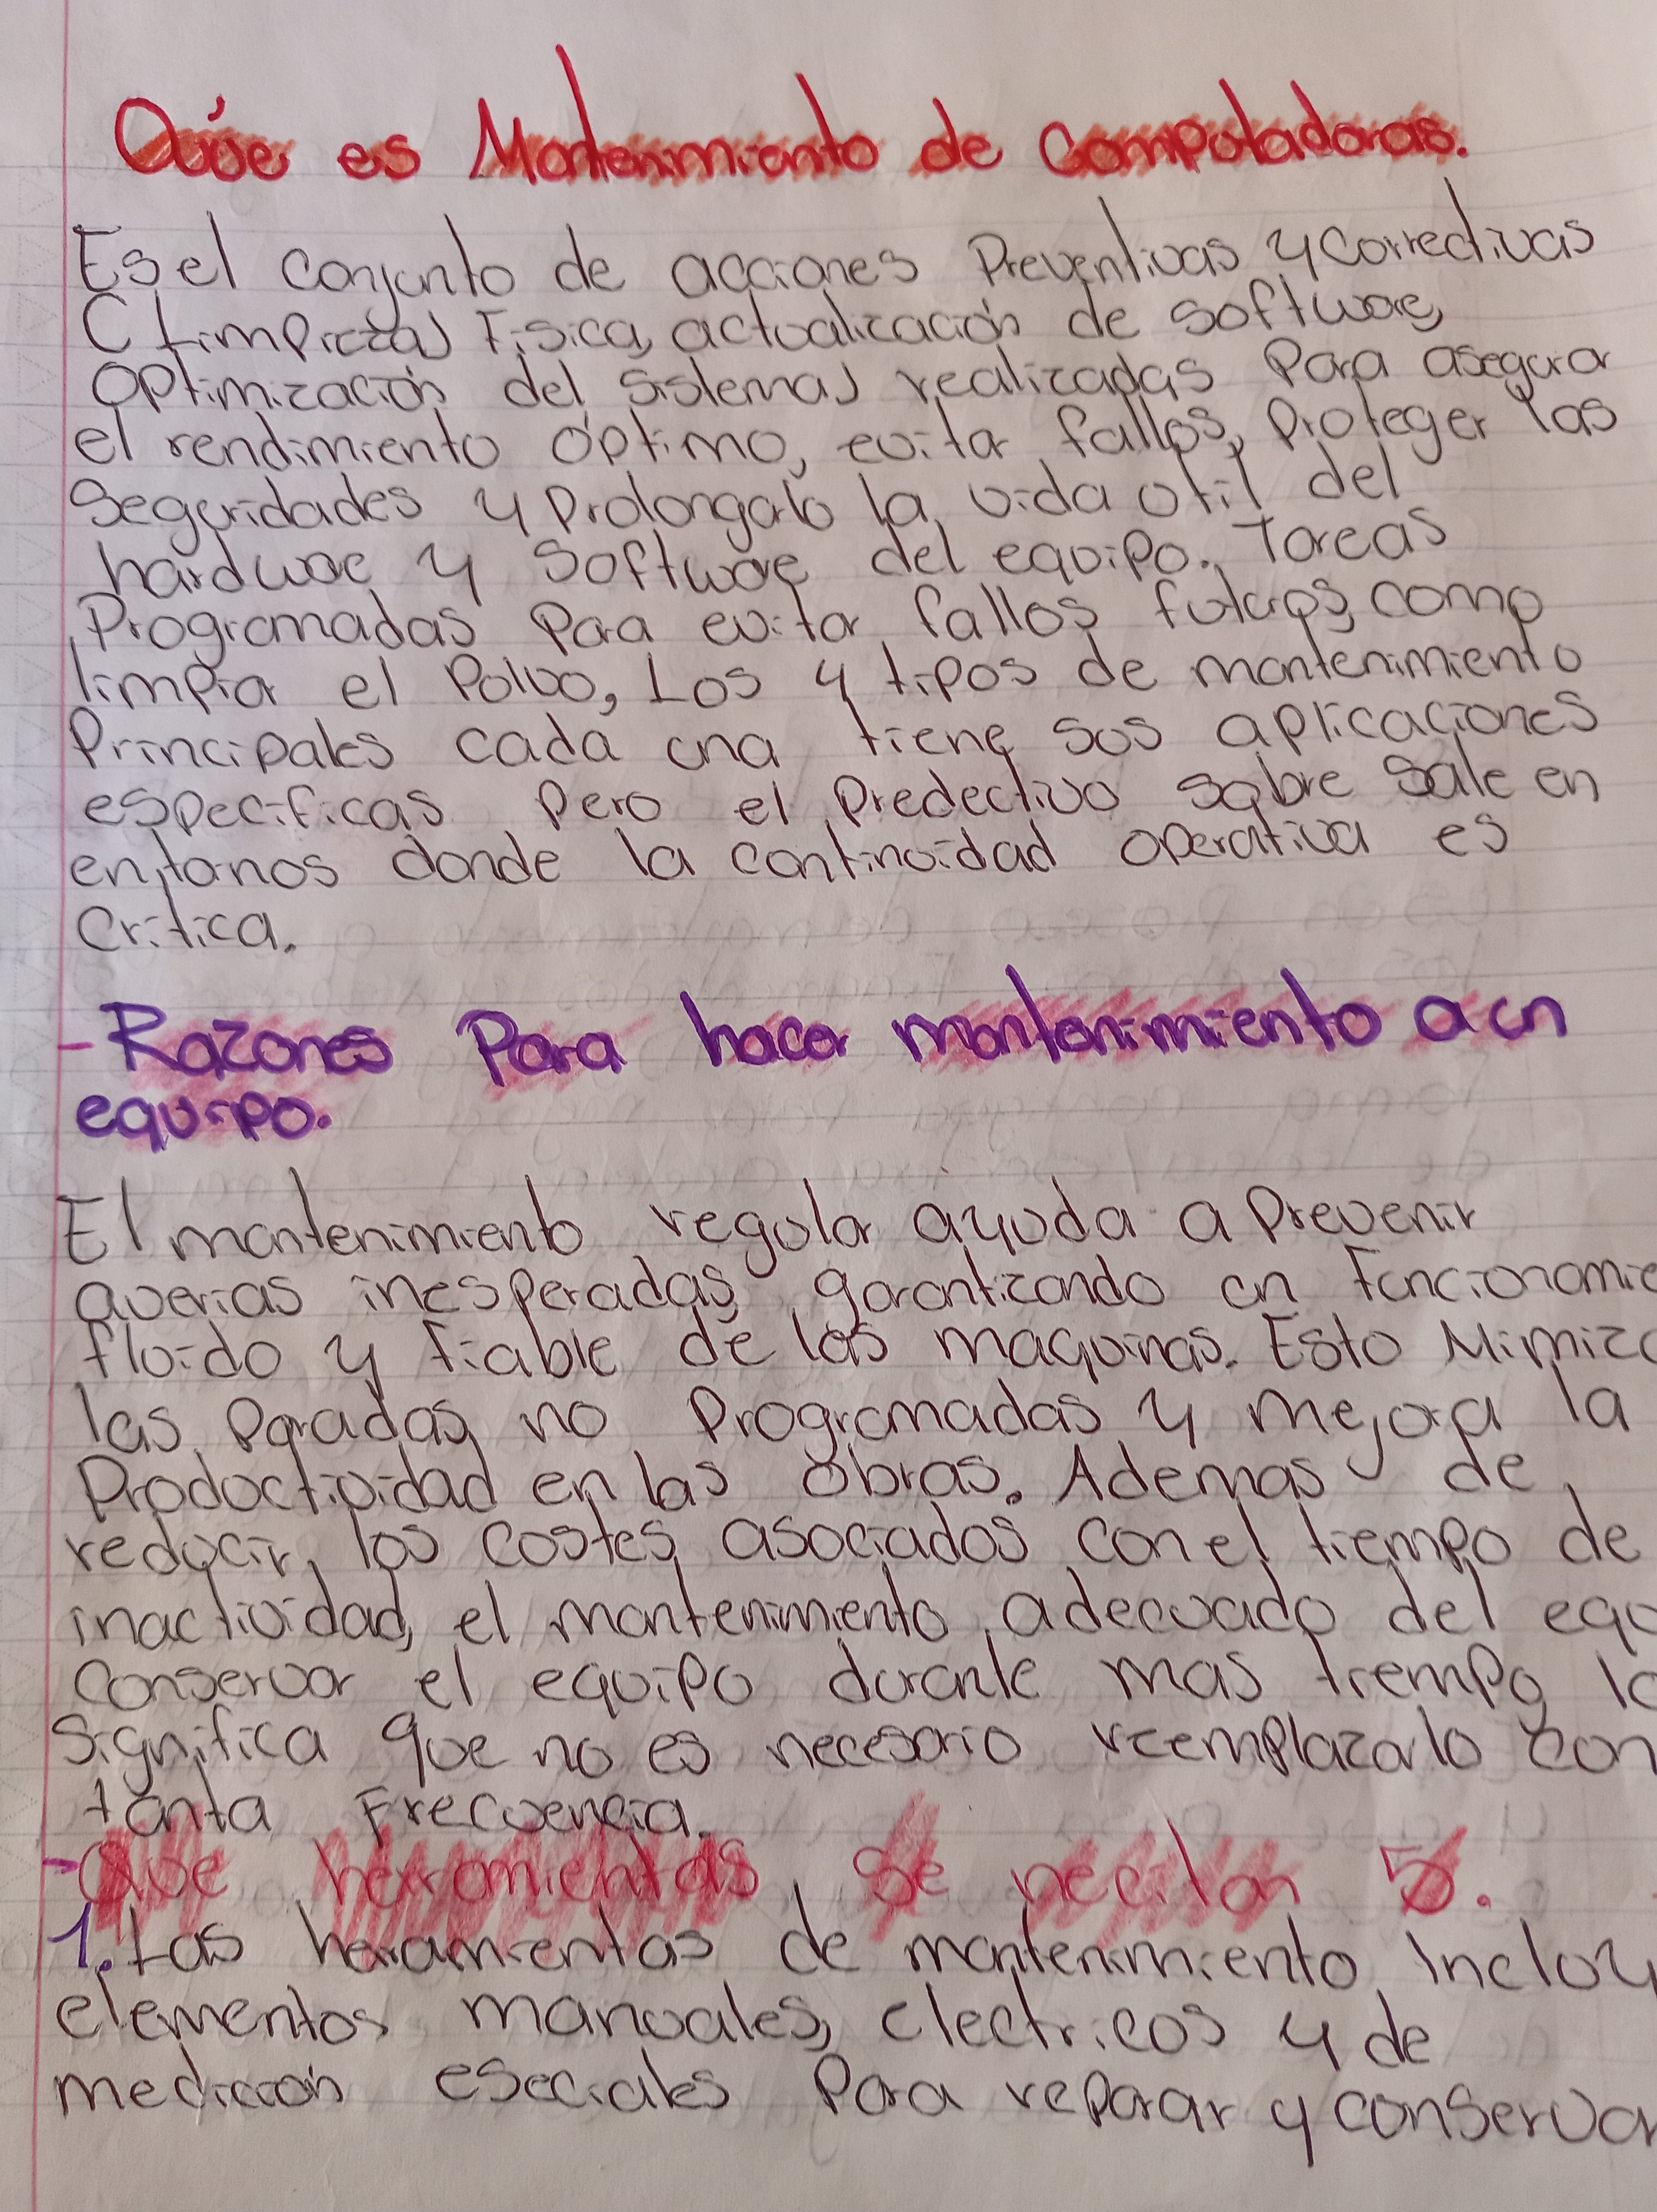 Qúe es Mantenimiento de Computadoras.
Es el conjunto de acciones Preventivas y correctivas
( Limpieza) Fisica, actualización de software,
optimización del sistema) realizadas Para asegurar
el rendimiento óptimo, evitar fallos, Proteger las
Seguridades y Prolongarlo la vida util del
hardware y Software del equipo. Tareas
Programadas Para evitar fallos futuros, como
limpiar el Polvo, Los 4 tipos de mantenimiento
Principales cada una tiene sus aplicaciones
especificas Pero el Predectivo sobre sale en
entornos donde la continuidad operativa es
Critica.
- Razones Para hacer mantenimiento a un
equipo.
El mantenimiento regular ayuda a Prevenir
averias inesperadas, garantizando un Funcionamie
fluido y Fiable de las maquinas. Esto Mimiza
las Paradas no Programadas y mejora la
Productividad en las obras. Ademas de
reducir los costes asociados con el tiempo de
inactividad, el mantenimiento adecuado del equ
conservar el equipo durante mas tiempo, lo
Significa que no es necesario reemplazarlo con
tanta Frecuencia.
- Que herramientas se necitan 5.
1. Las herramientas de mantenimiento incluy
elementos manuales, electricos y de
medición eseciales Para reparar y conservar